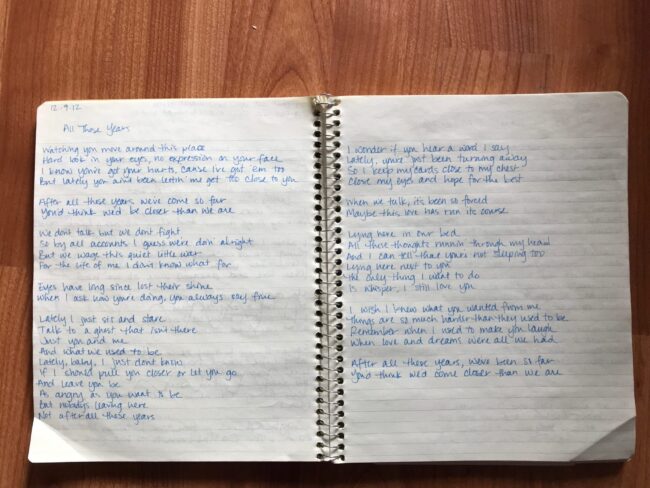 12.9.12
All These Years
Watching you move around this place
Hard look in your eyes, no expression on your face
I know you've got your hurts, cause I've got 'em too
But lately you aint been lettin' me get too close to you
After all these years, we've come so far
You'd think we'd be closer than we are
We dont talk but we dont fight
So by all accounts I guess we're doin' alright
But we wage this quiet little war
For the life of me I dont know what for
Eyes have long since lost their shine
When I ask how you're doing, you always say fine
Lately I just sit and stare
Talk to a ghost that isn't there
Just you and me
And what we used to be
Lately, baby, I just dont know
If I should pull you closer or let you go
And leave you be
As angry as you want to be
But nobodys leaving here
Not after all these years
I wonder if you hear a word I say
Lately, you've just been turning away
So I keep my cards close to my chest
Close my eyes and hope for the best
When we talk, its been so forced
Maybe this love has run its course
Lying here in our bed
All these thoughts runnin through my head
And I can tell that you're not sleeping too
Lying here next to you
The only thing I want to do
Is whisper, I still love you
I wish I knew what you wanted from me
Things are so much harder than they used to be
Remember when I used to make you laugh
When love and dreams were all we had
After all these years, we've been so far
You'd think we'd come closer than we are